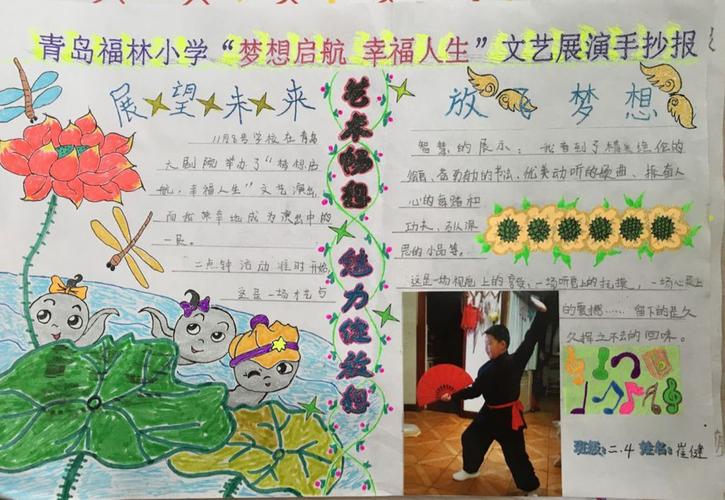 青岛福林小学“梦想启航 幸福人生”文艺展演手抄报
展望未来
11月8号学校在青岛
大剧院举办了“梦想启
航，幸福人生”文艺演出，
而我荣幸地成为演出中的
一员。
二点钟活动准时开始
这是一场才艺与
艺术畅想
魅力绽放
放飞梦想
智慧的展示：我看到了精美绝伦的
书法，优美动听的歌曲、振奋人
心的舞蹈和
功夫，引人深
思的小品等。
这是一场视觉上的享受，一场听觉上的
，一场心灵上
的震撼……留下的是久
久挥之不去的回味。
班级：二.4 姓名：崔健